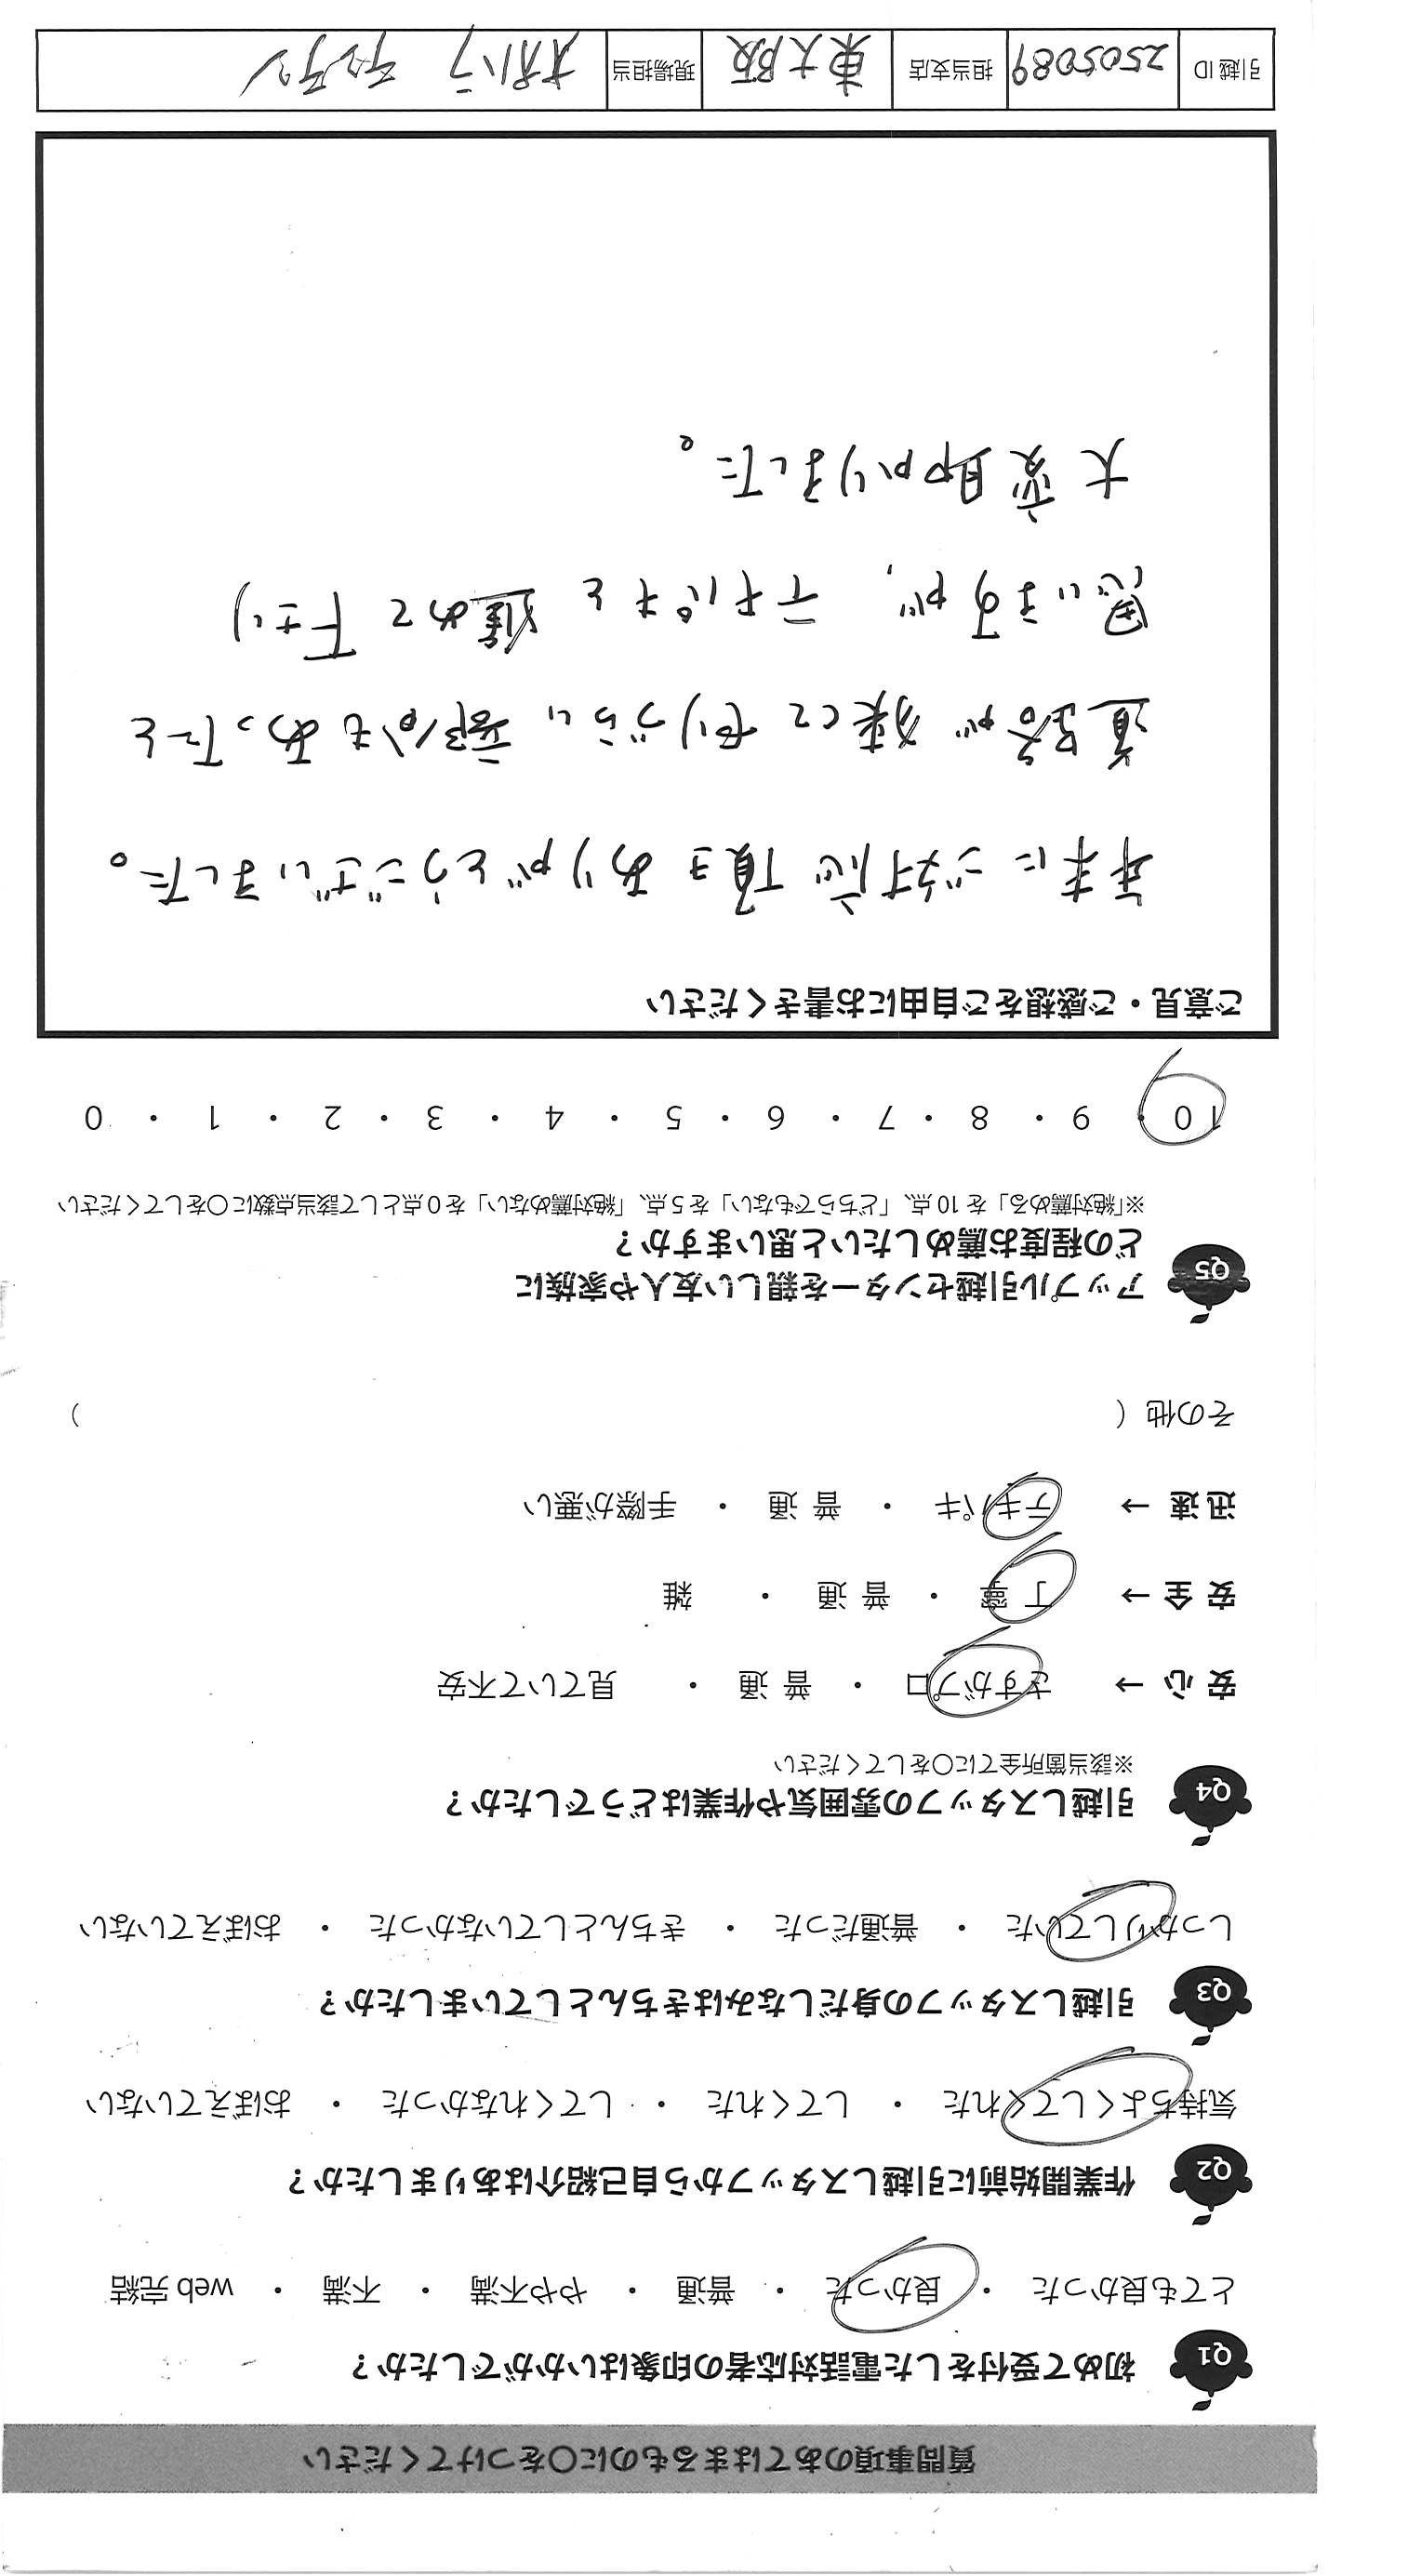 質問事項のあてはまるものに○をつけてください
Q1 初めて受付をした電話対応者の印象はいかがでしたか？
とても良かった ・ 良かった ・ 普通 ・ やや不満 ・ 不満 ・ web 完結
Q2 作業開始前に引越しスタッフから自己紹介はありましたか？
気持ちよくしてくれた ・ してくれた ・ してくれなかった ・ おぼえていない
Q3 引越しスタッフの身だしなみはきちんとしていましたか？
しっかりしていた ・ 普通だった ・ きちんとしていなかった ・ おぼえていない
Q4 引越しスタッフの雰囲気や作業はどうでしたか？
※該当箇所全てに○をしてください
安 心 → さすがプロ ・ 普 通 ・ 見ていて不安
安 全 → 丁 寧 ・ 普 通 ・ 雑
迅 速 → テキパキ ・ 普 通 ・ 手際が悪い
その他（ ）
Q5 アップル引越センターを親しい友人や家族に
どの程度お薦めしたいと思いますか？
※「絶対薦める」を 10 点、「どちらでもない」を 5 点、「絶対薦めない」を 0 点として該当点数に○をしてください
10 ・ 9 ・ 8 ・ 7 ・ 6 ・ 5 ・ 4 ・ 3 ・ 2 ・ 1 ・ 0
ご意見・ご感想をご自由にお書きください
年末にご対応頂きありがとうございました。
道路が狭くて やりづらい 部分もあったと
思いますが、テキパキと 進めて 下さり
大変助かりました。
引越 ID 2505089 担当支店 東大阪 現場担当